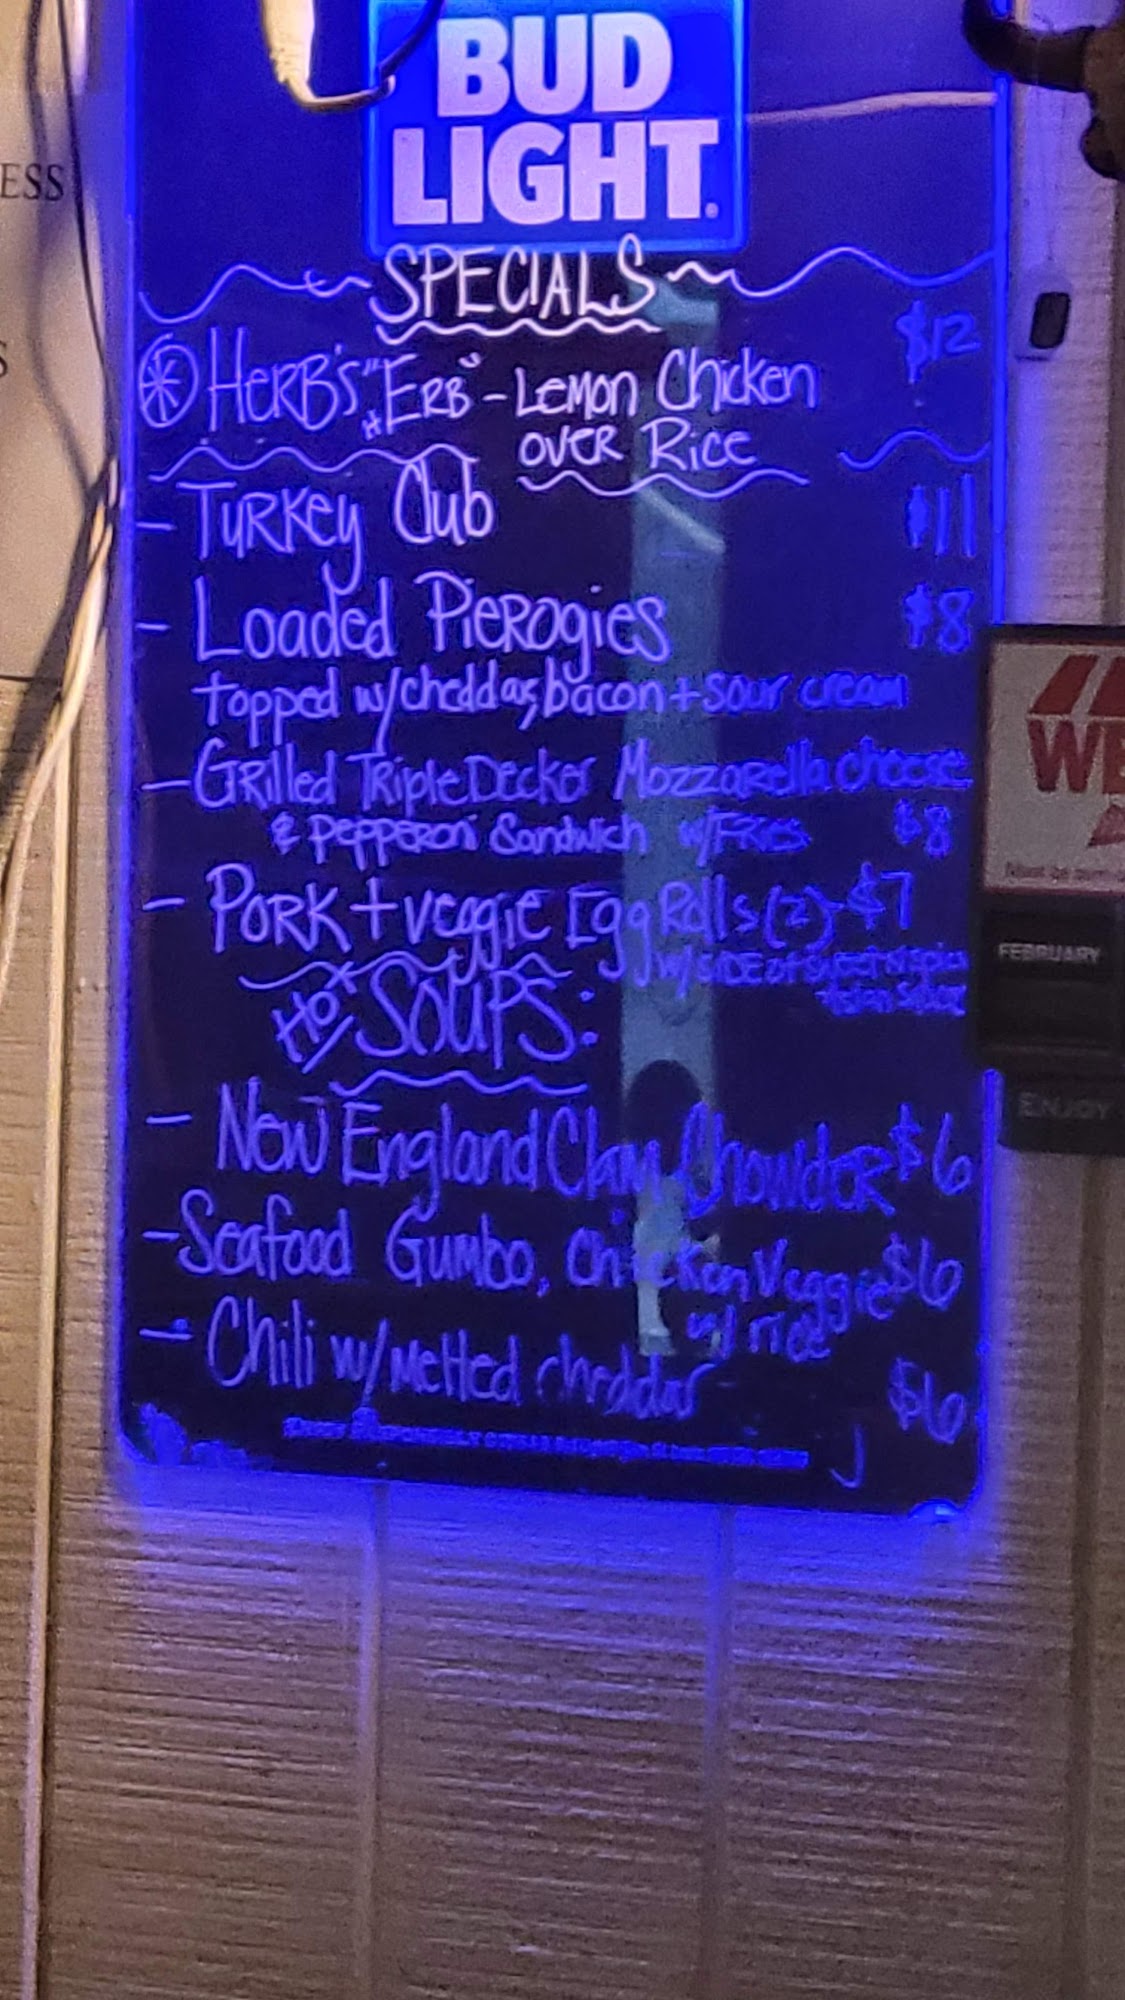 BUD
LIGHT
ESS
S
SPECIALS
HERB'S "ERB" - Lemon Chicken $12
over Rice
- Turkey Club $11
- Loaded Pierogies $8
topped w/cheddar, bacon + sour cream
- Grilled Triple Decker Mozzarella cheese
& Pepperoni Sandwich w/Fries $8
- Pork + veggie Egg Rolls (2) - $7
w/ SIDE of sweet
Asian Sauce
HOT SOUPS:
- New England Clam Chowder $6
- Seafood Gumbo, Chicken Veggie $6
w/ rice
- Chili w/Melted cheddar
$6
WE
FEBRUARY
ENJOY